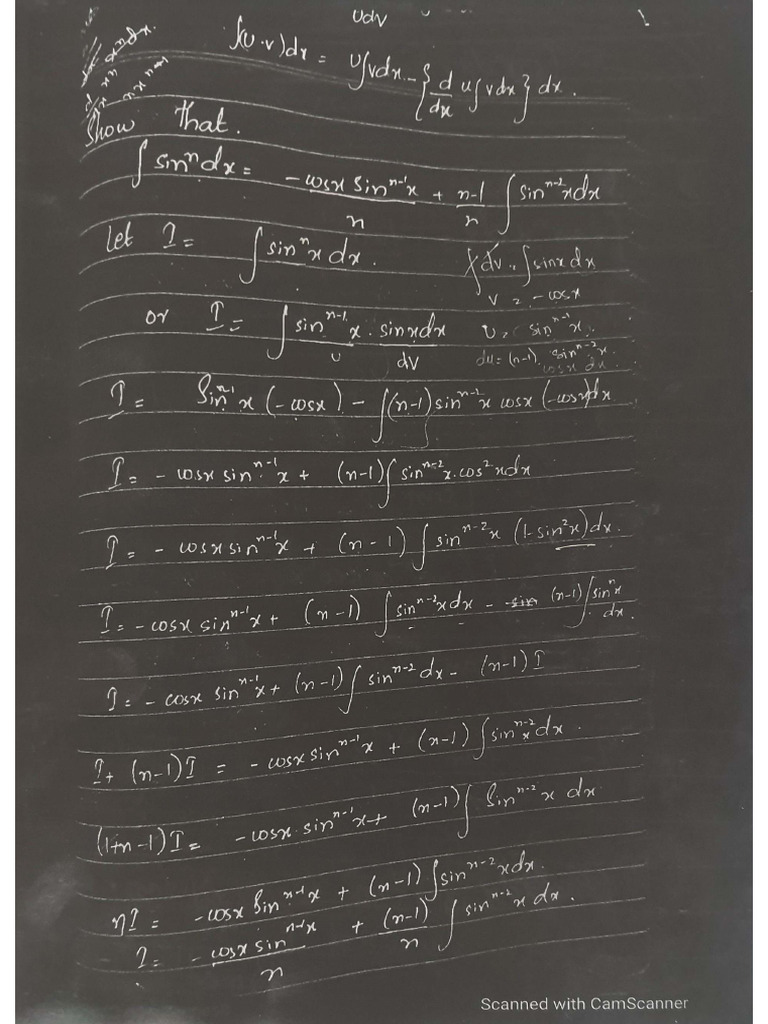 udv
∫(u·v)dx = u∫vdx - {d/dx u∫vdx} dx.
Show that.
∫sinⁿdx = -cosx sinⁿ⁻¹x/n + n-1/n ∫sinⁿ⁻²xdx
let I = ∫sinⁿx dx.
∫dv = ∫sinx dx
v = -cosx
or I = ∫sinⁿ⁻¹x · sinxdx
u dv
u = sinⁿ⁻¹x.
du = (n-1) · sinⁿ⁻²x · cosx dx.
I = Sinⁿ⁻¹x (-cosx) - ∫(n-1) sinⁿ⁻²x cosx (-cosx)dx
I = -cosx sinⁿ⁻¹x + (n-1)∫sinⁿ⁻²x.cos²xdx
I = - cosx sinⁿ⁻¹x + (n-1)∫sinⁿ⁻²x (1-sin²x)dx.
I = -cosx sinⁿ⁻¹x + (n-1) ∫sinⁿ⁻²xdx - (n-1)∫sinⁿx dx.
I = -cosx sinⁿ⁻¹x + (n-1)∫sinⁿ⁻²dx - (n-1)I
I + (n-1)I = -cosx sinⁿ⁻¹x + (n-1)∫sinⁿ⁻²x dx.
(1+n-1)I = -cosx·sinⁿ⁻¹x + (n-1)∫Sinⁿ⁻²x dx
nI = -cosx Sinⁿ⁻¹x + (n-1)∫sinⁿ⁻²xdx.
I = -cosx sinⁿ⁻¹x/n + (n-1)/n ∫sinⁿ⁻²x dx.
Scanned with CamScanner